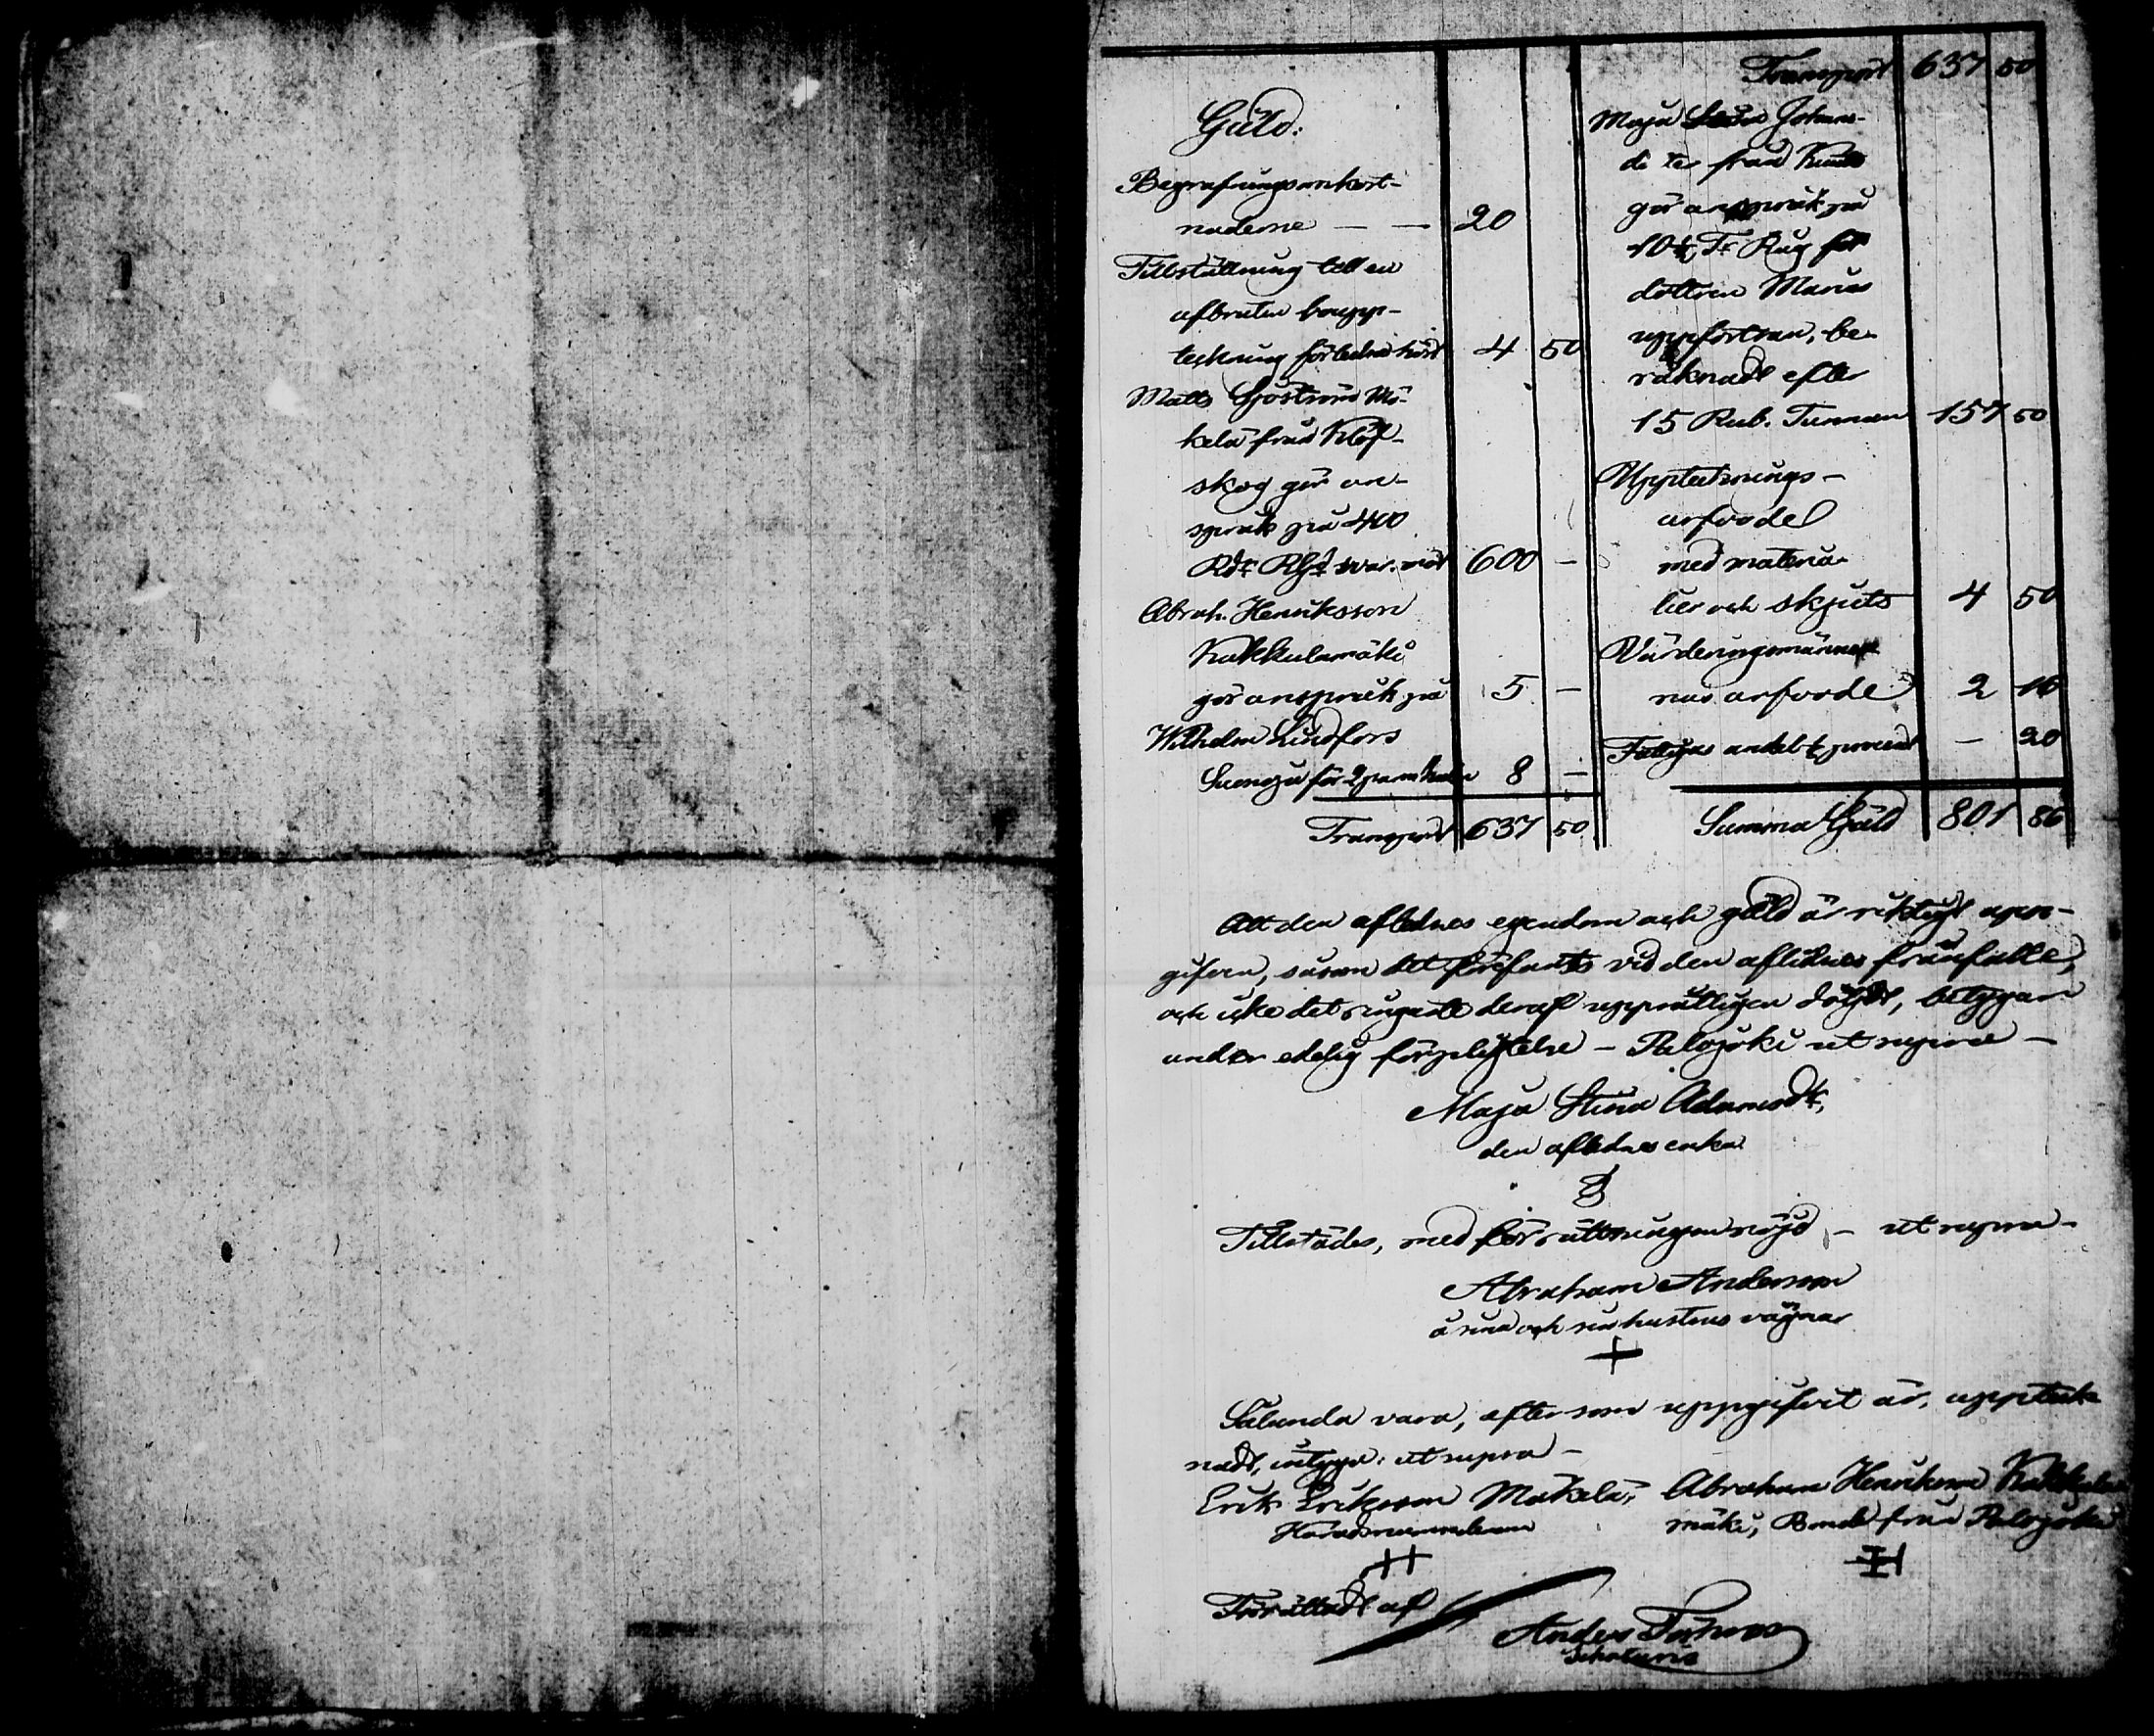 Gäld:
Begrafningsomkost-
naderne — — 20
Tillställning till en
afbruten boupp-
teckning förleden höst 4 50
Matts Sjöström Mä-
kelä från Klöf-
skog gör an-
språk på 400
Rdr Rgs svar. mot 600 —
Abrah. Henriksson
Kukkulamäki
gör anspråk på 5 —
Wilhelm Lindfors
för 2 8 —
Transport 637 50
Transport 637 50
Maja Johans-
dotter från
gör anspråk på
10½ Tr Råg för
dottren Marias
uppfostran, be-
räknadt efter
15 Rub. Tunnan 157 50
Upptecknings-
arfvode
med materia-
lier och skjuts 4 50
Värderingsmänner-
nas arfvode 2 16
Fattigas andel ⅛ procent — 20
Summa Gäld 801 86
Att den aflednes egendom och gäld är riktigt upp-
gifven, såsom det förefants vid den aflidnes frånfälle,
och icke det ringaste deraf uppsåtligen döljdt, betygar
under edelig förpligtelse – Palojoki ut supra –
Maja Stina Adamsdr,
den aflednes enka
Tillstädes, med förrättningen nöjd, – ut supra –
Abraham Andersson
å sina och sin hustrus vägnar
Sålunda vara, efter som uppgifvit är, uppteck-
nadt, intyga: ut supra –
Erik Eriksson Mäkelä, Abraham Henriksson Kukkula-
Häradsnämndeman mäki, Bonde från Palojoki
Förrättadt af
Anders